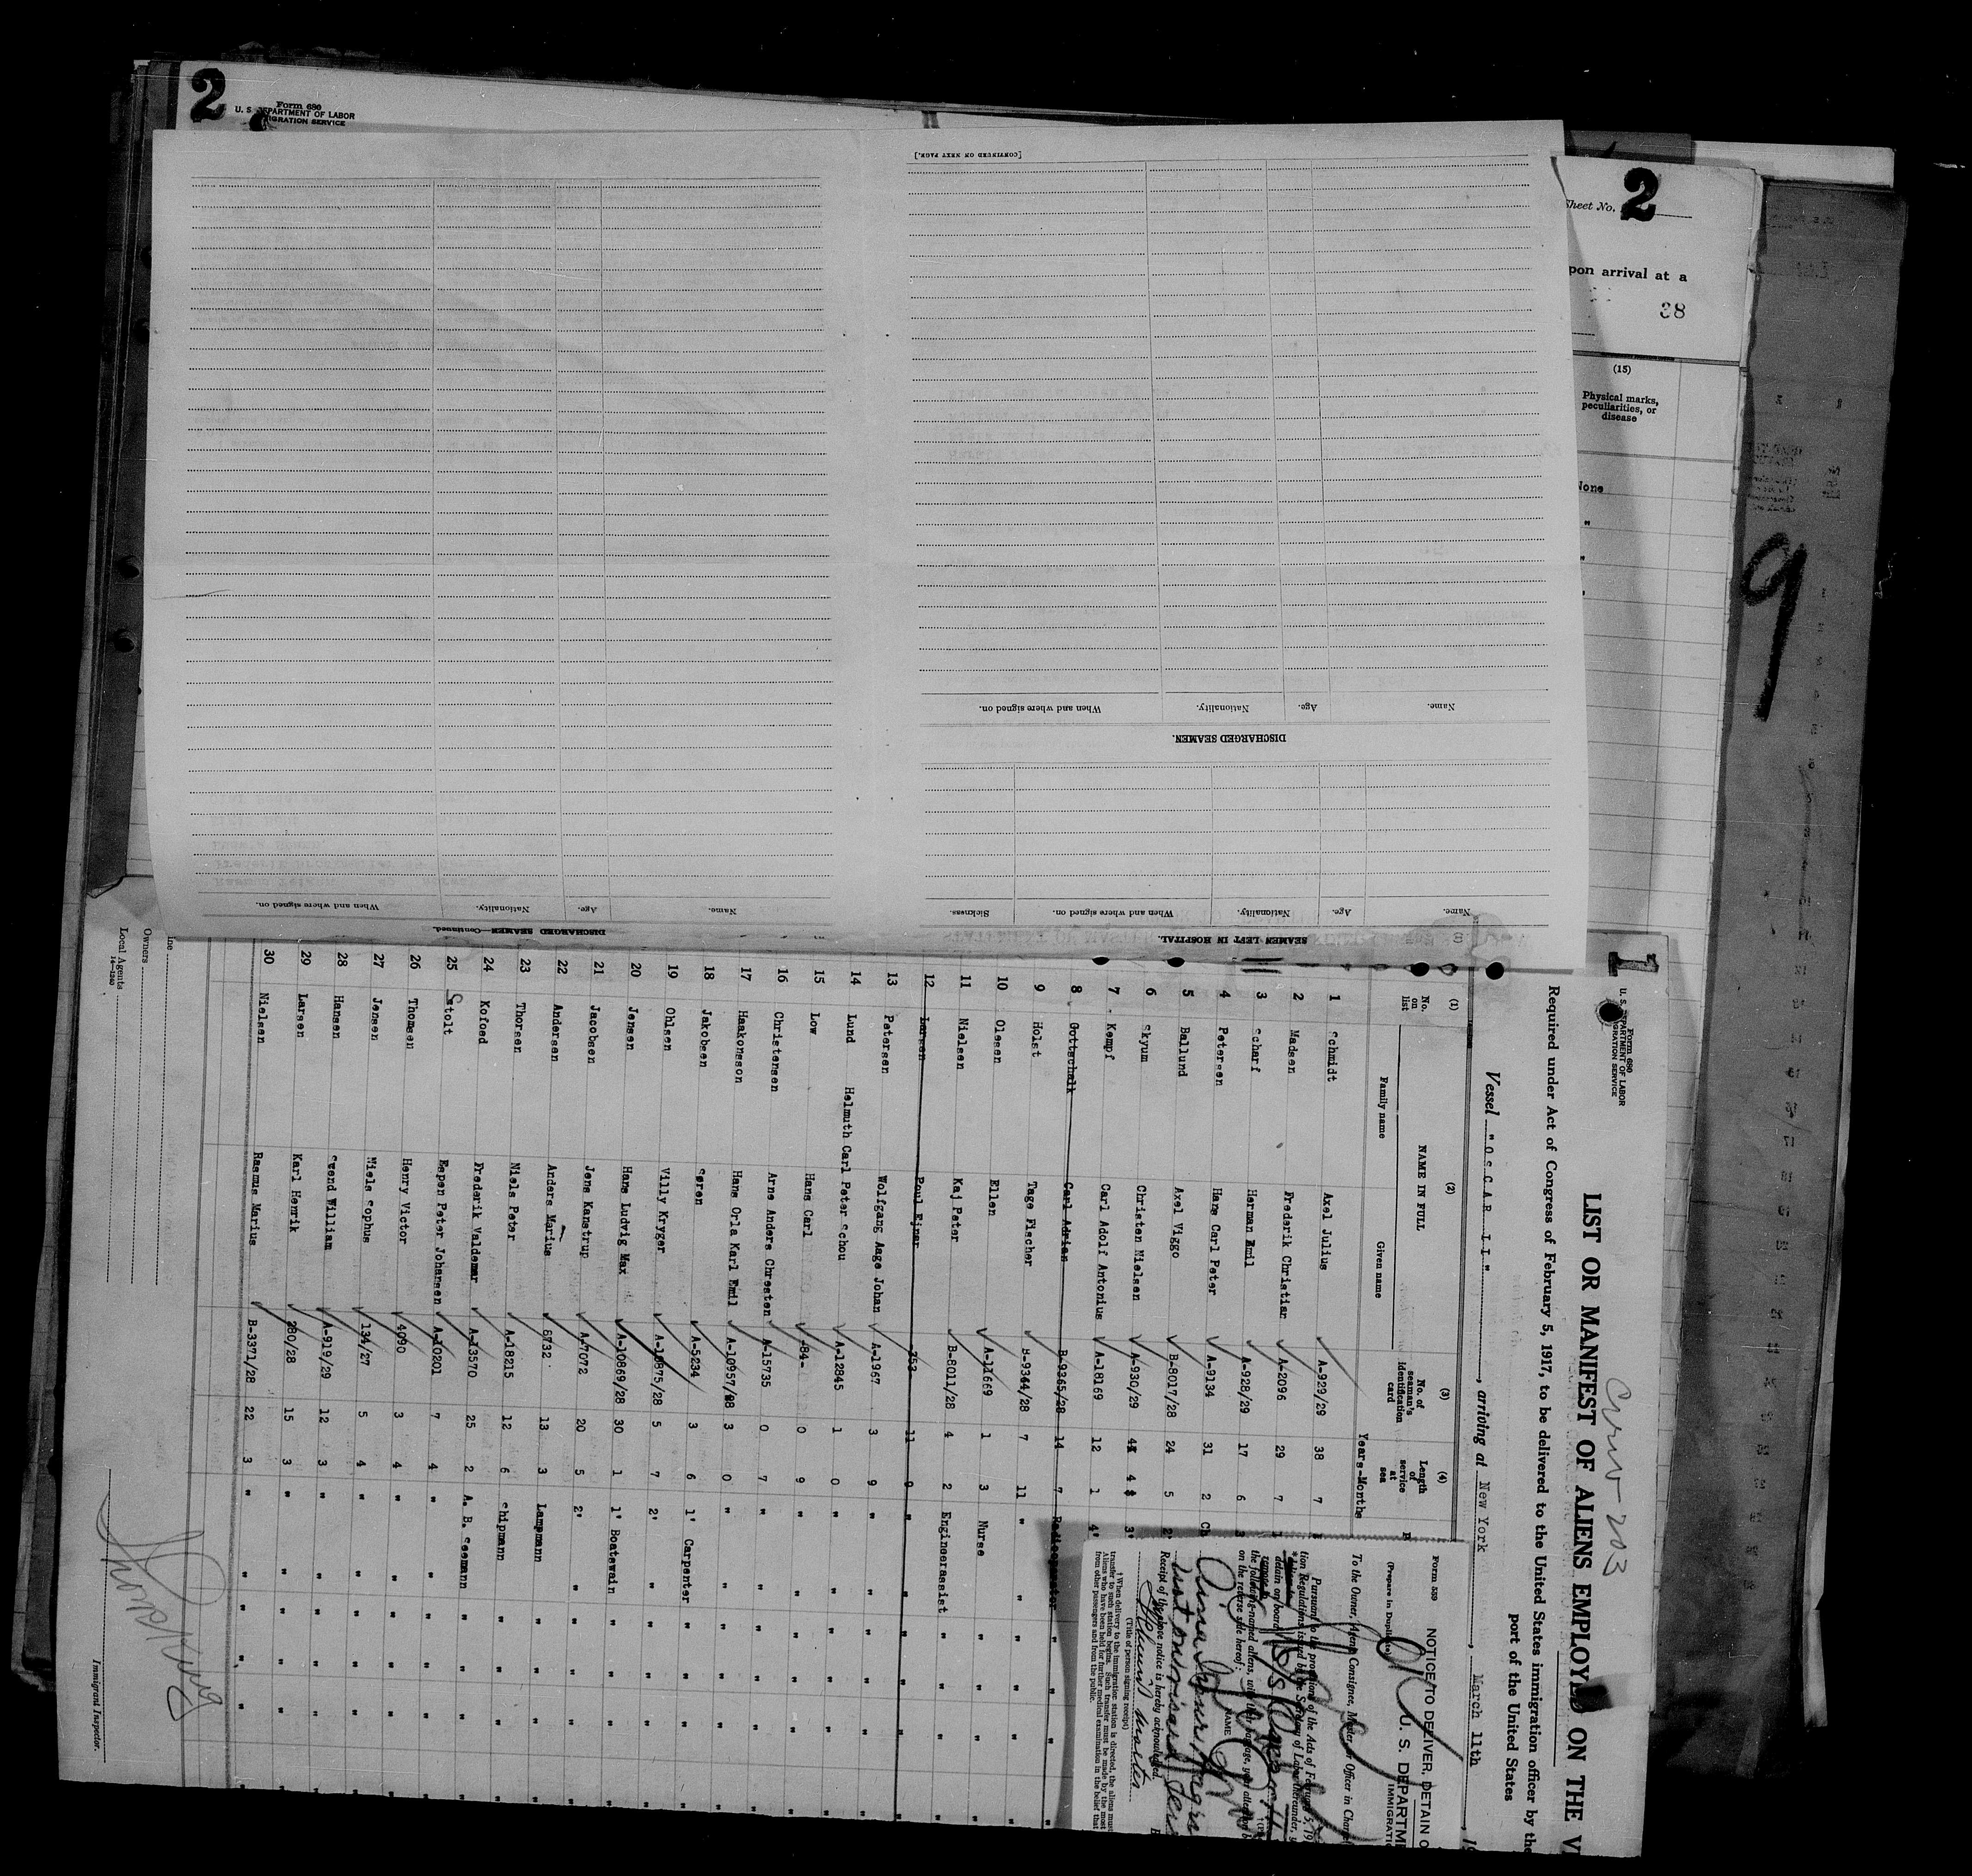 2
Form 680
U. S. DEPARTMENT OF LABOR
IMMIGRATION SERVICE
Sheet No. 2
upon arrival at a
38
(15)
Physical marks, peculiarities, or disease
None
"
"
"
9
[CONTINUED ON NEXT PAGE.]
Name. Age. Nationality. When and where signed on.
DISCHARGED SEAMEN.
Name. Age. Nationality. When and where signed on. Sickness.
SEAMEN LEFT IN HOSPITAL.
Name. Age. Nationality. When and where signed on.
DISCHARGED SEAMEN—Continued.
1
Form 680
U. S. DEPARTMENT OF LABOR
IMMIGRATION SERVICE
Crew 203
LIST OR MANIFEST OF ALIENS EMPLOYED ON THE
Required under Act of Congress of February 5, 1917, to be delivered to the United States immigration officer by the
port of the United States
Vessel "OSCAR II", arriving at New York, March 11th, 19
(1) (2) (3) (4)
No. on list NAME IN FULL No. of seaman's identification card Length of service at sea
Family name Given name
Years-Months
1 Schmidt Axel Julius A-929/29 38 7
2 Madsen Frederik Christian A-2096 29 7
3 Scharf Herman Emil A-928/29 17 6
4 Petersen Hans Carl Peter A-9134 31 2 Ch
5 Ballund Axel Viggo B-8017/28 24 5 2'
6 Skyum Christen Nielsen A-930/29 4 3'
7 Kempf Carl Adolf Antonius A-18169 12 1 4'
8 Gottschalk Carl Adrian B-9365/28 14 7 Radiooperator
9 Holst Tage Fischer B-9364/28 7 11 "
10 Olesen Ellen A-11669 1 3 Nurse
11 Nielsen Kaj Peter B-8011/28 4 2 Engineerassist
12 Larsen Poul Ejnar 753 11 9 "
13 Petersen Wolfgang Aage Johan A-1967 3 9 "
14 Lund Helmuth Carl Peter Schou A-12845 1 0 "
15 Low Hans Carl -84- 0 9 "
16 Christensen Arne Anders Chresten A-15735 0 7 "
17 Haakonsson Hans Orla Karl Emil A-10957/28 3 0 "
18 Jakobsen Søren A-5234 3 6 1' Carpenter
19 Ohlsen Villy Kryger A-10875/28 5 7 2' "
20 Jensen Hans Ludvig Max A-10869/28 30 1 1' Boatswain
21 Jacobsen Jens Kanstrup A-7072 20 5 2' "
22 Andersen Anders Marius 8732 13 3 Lampmann
23 Thorsen Niels Peter A-18215 12 6 Shipmann
24 Kofoed Frederik Valdemar A-13570 25 2 A. B. Seemann
25 Stolt Espen Peter Johansen A-10201 7 4 " "
26 Thomsen Henry Victor 4090 3 4 " "
27 Jensen Niels Sophus 134/27 5 4 " "
28 Hansen Svend William A-919/29 12 3 " "
29 Larsen Karl Henrik 280/28 15 3 " "
30 Nielsen Rasmus Marius B-3371/28 22 3 " "
Line
Owners
Local Agents
14—1240
Immigrant Inspector.
Form 539
(Prepare in Duplicate)
NOTICE TO DELIVER, DETAIN O
U. S. DEPARTME
IMMIGRATI
To the Owner, Agent, Consignee, Master or Officer in Charge
Pursuant to the provisions of the Acts of February 5, 19
tion Regulations issued by the Secretary of Labor thereunder, y
detain on board
the following-named aliens, with their baggage, you
on the reverse side hereof:
NAME
Receipt of the above notice is hereby acknowledged.
(Title of person signing receipt)
† When delivery to the immigration station is directed, the aliens must
transfer to such station begins. Such transfer must be made by the most
Aliens who have been held for further medical examination in the belief that
from other passengers and from the public.